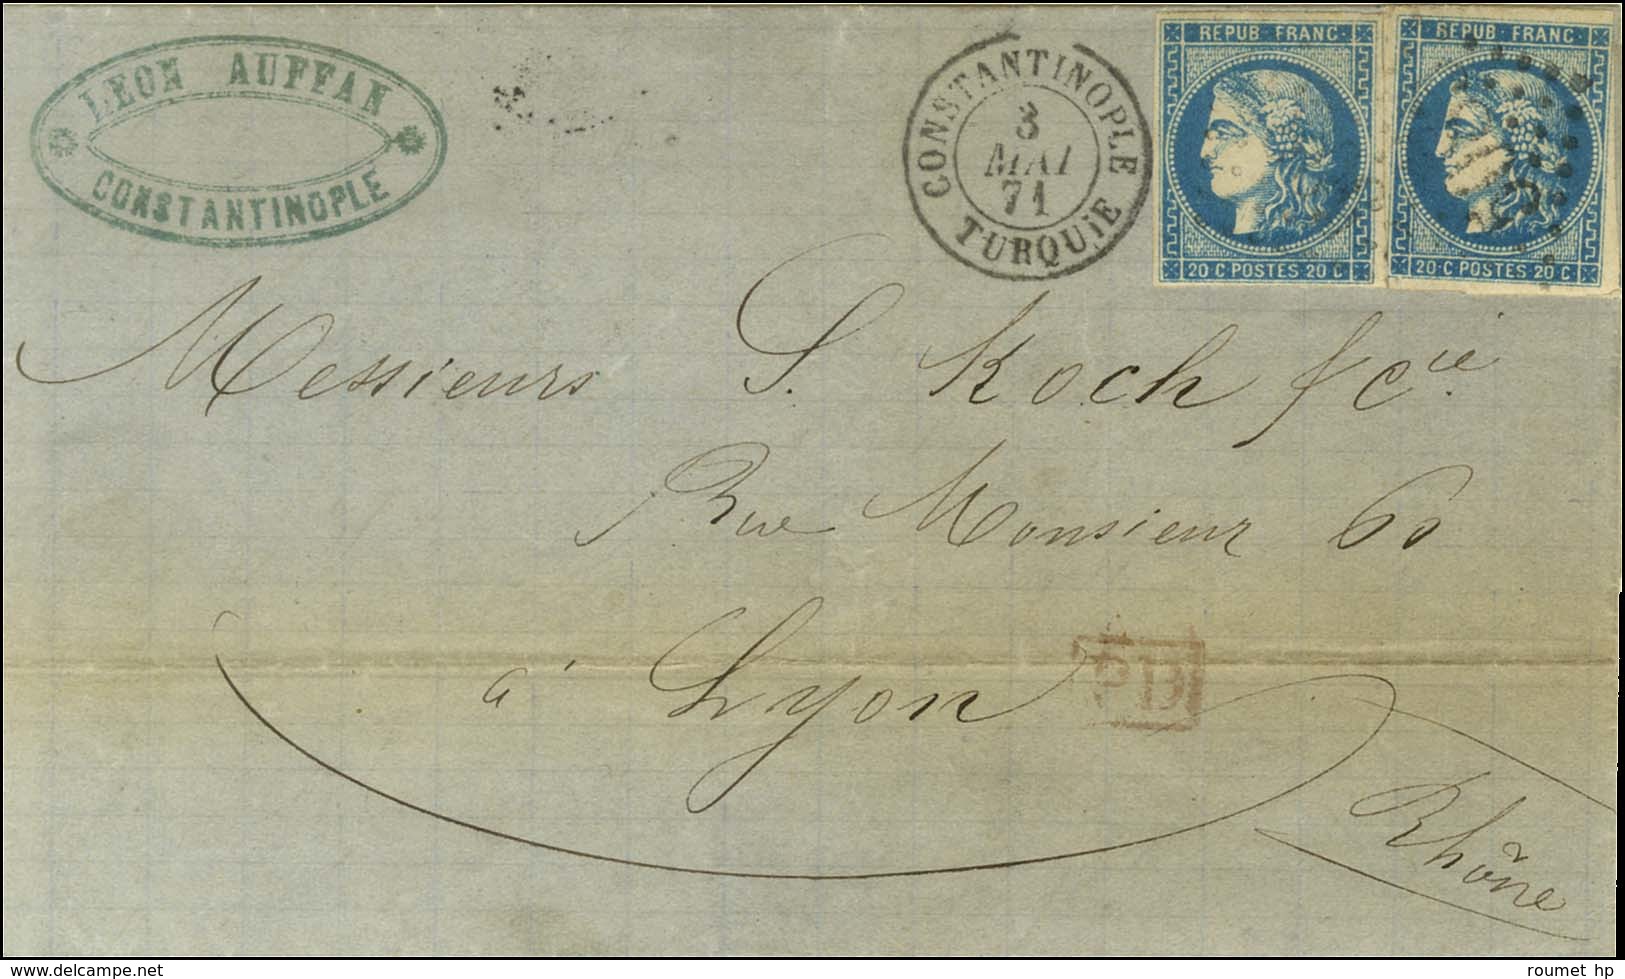 LEON AUFFAN
CONSTANTINOPLE
CONSTANTINOPLE
3
MAI
71
TURQUIE
REPUB FRANC
20 C POSTES 20 C
REPUB FRANC
20 C POSTES 20 C
Messieurs S. Koch & Cie.
Rue Monsieur 60
à Lyon
PD
Rhône
www.delcampe.net
roumet hp